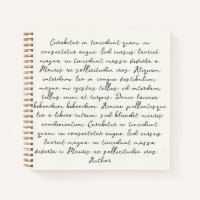 Curabitur in tincidunt quam, eu
consectetur augue. Sed cursus laoreet
magna, eu tincidunt massa viverra a.
Mauris ac sollicitudin eros. Aliquam
interdum leo in congue vestibulum,
magna mi egestas tellus, id interdum
tellus enim at turpis. Donec lacinia
bibendum bibendum. Aenean pellentesque
leo a libero rutrum, sed blandit mauris
condimentum. Curabitur in tincidunt
quam, eu consectetur augue. Sed cursus
laoreet magna, eu tincidunt massa
viverra a. Mauris ac sollicitudin eros. -
Author